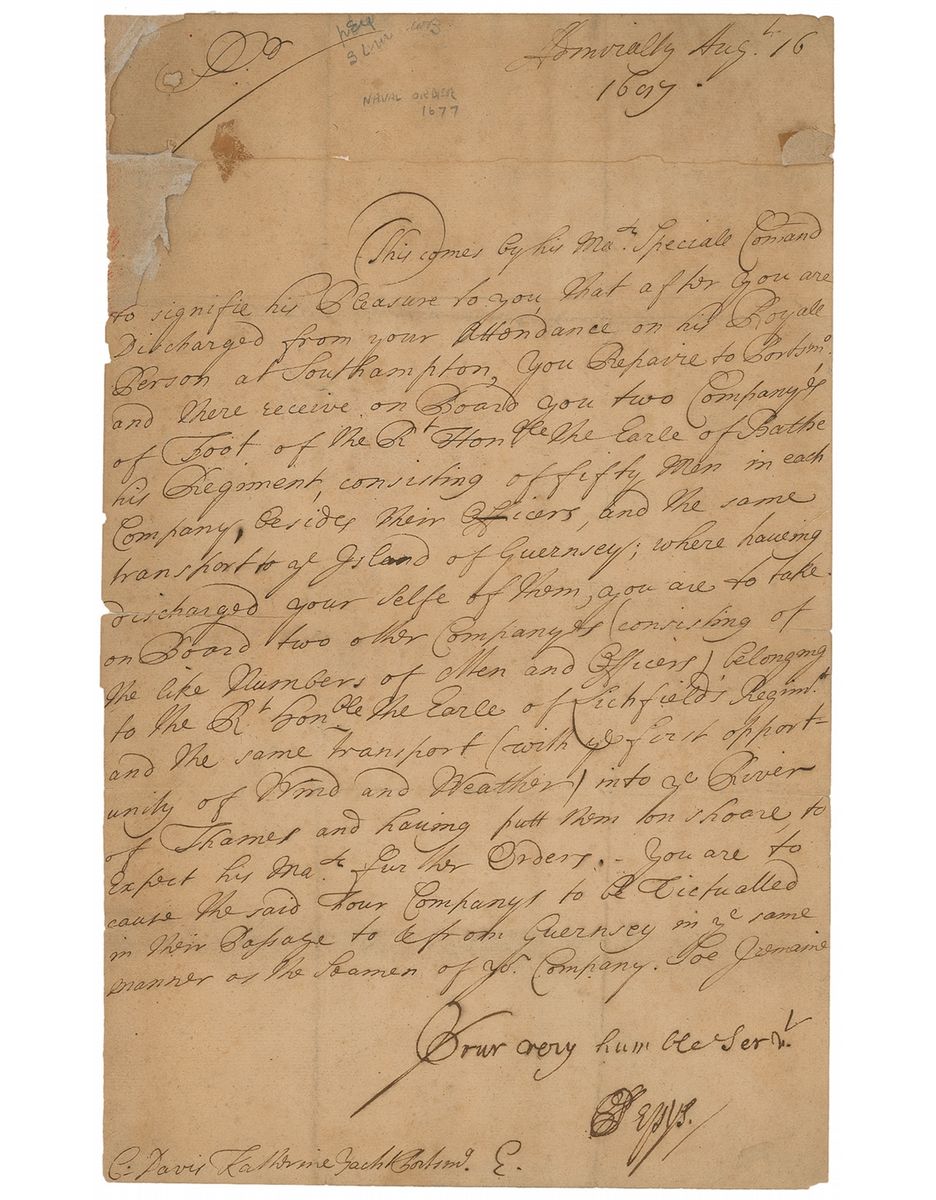 Sr
NAVAL ORDER
1677
Admiralty Aug.t 16
1687.
This comes by his Ma.ts Speciall Comand
to signifie his Pleasure to you, that after you are
Discharged from your Attendance on his Royale
Person at Southampton, you Repaire to Portsm.o
and there receive on Board you two Company's
of Foot of the Rt Honble the Earle of Bathe
his Regiment, consisting of fifty Men in each
Company, besides their Officers, and the same
transport to ye Island of Guernsey; where haueing
discharged your selfe of them, you are to take
on Board two other Companys (consisting of
the like Numbers of Men and Officers) belonging
to the Rt honble the Earle of Lichfield's Regim.t
and the same transport (with ye first opport-
unity of Wind and Weather) into ye River
of Thames and having putt them on shoare to
Expect his Ma.ts further Orders. - You are to
cause the said Four Companys to be Victualled
in their Passage to & from Guernsey in ye same
manner as the Seamen of yor. Company. Soe I remaine
Your very humble Serv.t
SPepys.
C: Davis Katherine Yacht Portsm.o E.